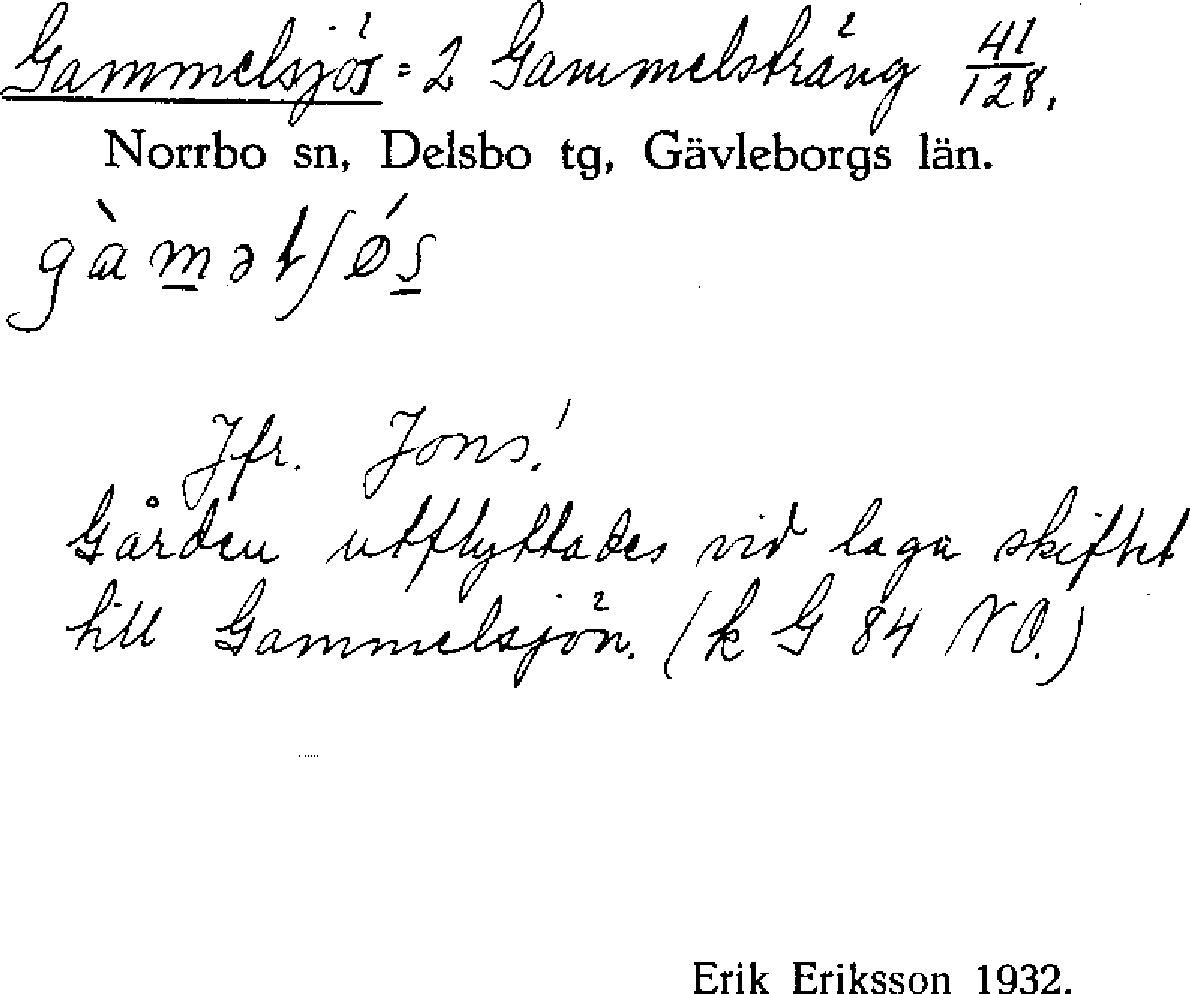 Gammelsjös = 2 Gammelsträng 41/128.
Norrbo sn, Delsbo tg, Gävleborgs län.
gàm̲ətʃǿs̲
Jfr. Jons!
Gården utflyttades vid laga skiftet
till Gammelsjön. (k G 84 NO.)
Erik Eriksson 1932.